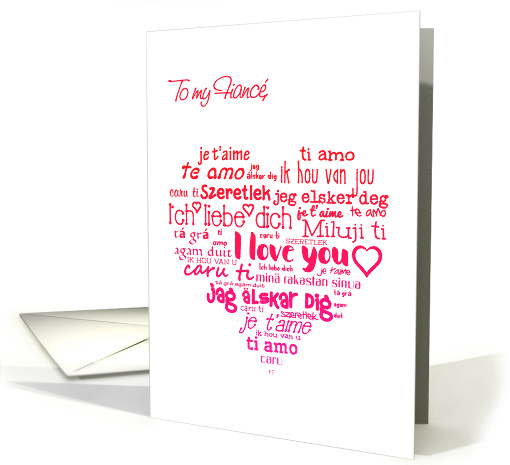 To my Fiancé,
je t'aime ti amo
te amo jag älskar dig ik hou van jou
caru ti Szeretlek jeg elsker deg
Ich liebe dich je t'aime te amo
Miluji ti
tá grá amo caru ti SZERETLEK
agam duit I love you
IK HOU VAN U Ich liebe dich je t'aime
caru ti minä rakastan sinua
tá grá agam duit tá grá
jag älskar dig agam duit
caru ti szeretlek
je t'aime
ik hou van u
ti amo
caru
ti